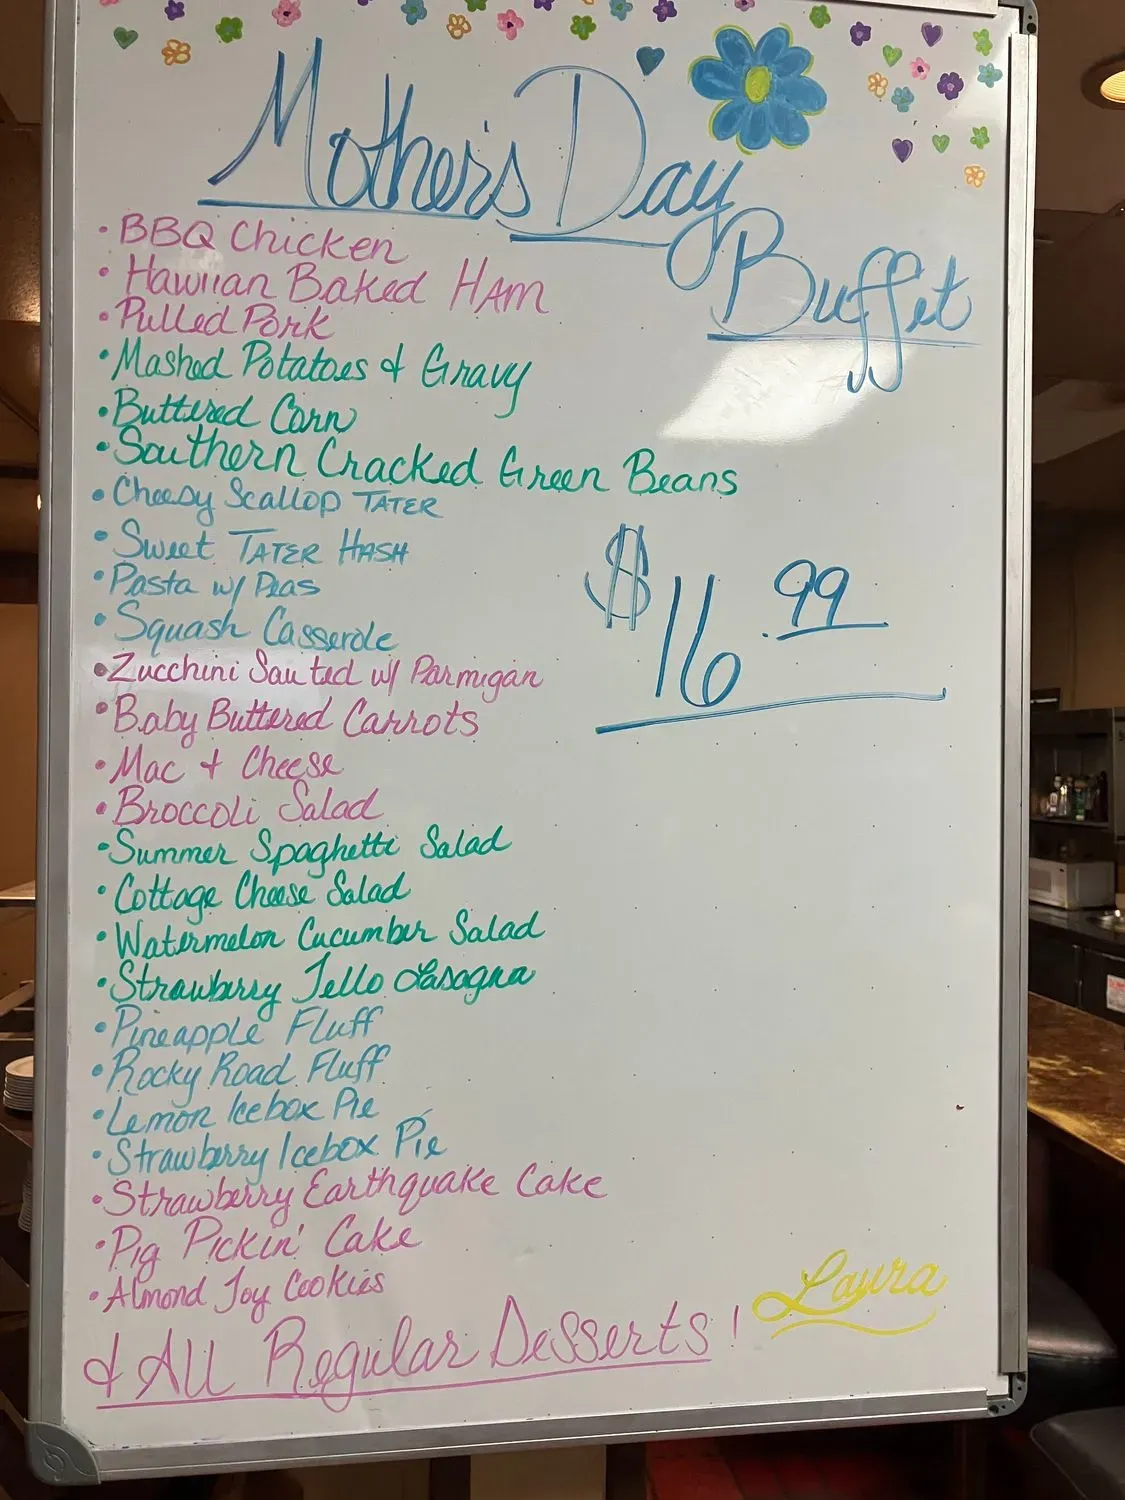 Mother's Day
Buffet
• BBQ Chicken
• Hawiian Baked Ham
• Pulled Pork
• Mashed Potatoes & Gravy
• Buttered Corn
• Southern Cracked Green Beans
• Cheesy Scallop TATER
• Sweet TATER HASH
• Pasta w/ Peas
• Squash Casserole
• Zucchini Sauted w/ Parmigan
• Baby Buttered Carrots
• Mac & Cheese
• Broccoli Salad
• Summer Spaghetti Salad
• Cottage Cheese Salad
• Watermelon Cucumber Salad
• Strawberry Jello Lasagna
• Pineapple Fluff
• Rocky Road Fluff
• Lemon Icebox Pie
• Strawberry Icebox Pie
• Strawberry Earthquake Cake
• Pig Pickin' Cake
• Almond Joy Cookies
& All Regular Desserts!
$16.99
Laura